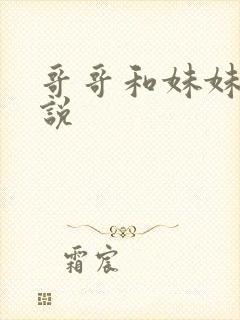 哥哥和妹妹
説
霜宸